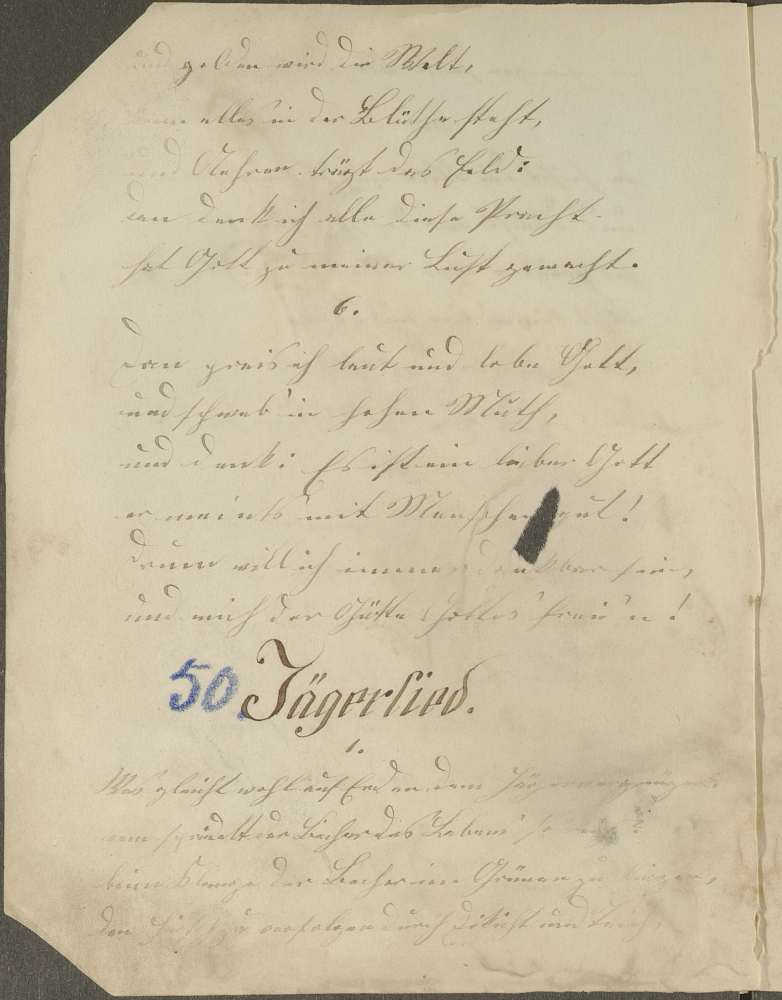 und golden wird die Welt,
wenn alles in der Blüthe steht,
und Aehren trägt das Feld:
dan denk ich alle diese Pracht
hat Gott zu meiner Lust gemacht.
6.
Dan preis ich laut und lobe Gott,
und schweb' in hohen Muth,
und denk: Es ist ein lieber Gott
er meints mit Menschen gut!
Drum will ich immer dankbar sein,
und mich der Güte Gottes freu'n!
50. Jägerlied.
1.
Was gleicht wohl auf Erden dem Jägervergnügen
wem sprudelt der Becher des Lebens so
beim Klange der Becher im Grünen zu liegen,
den Hirsch zu verfolgen durch Dikicht und Teich,